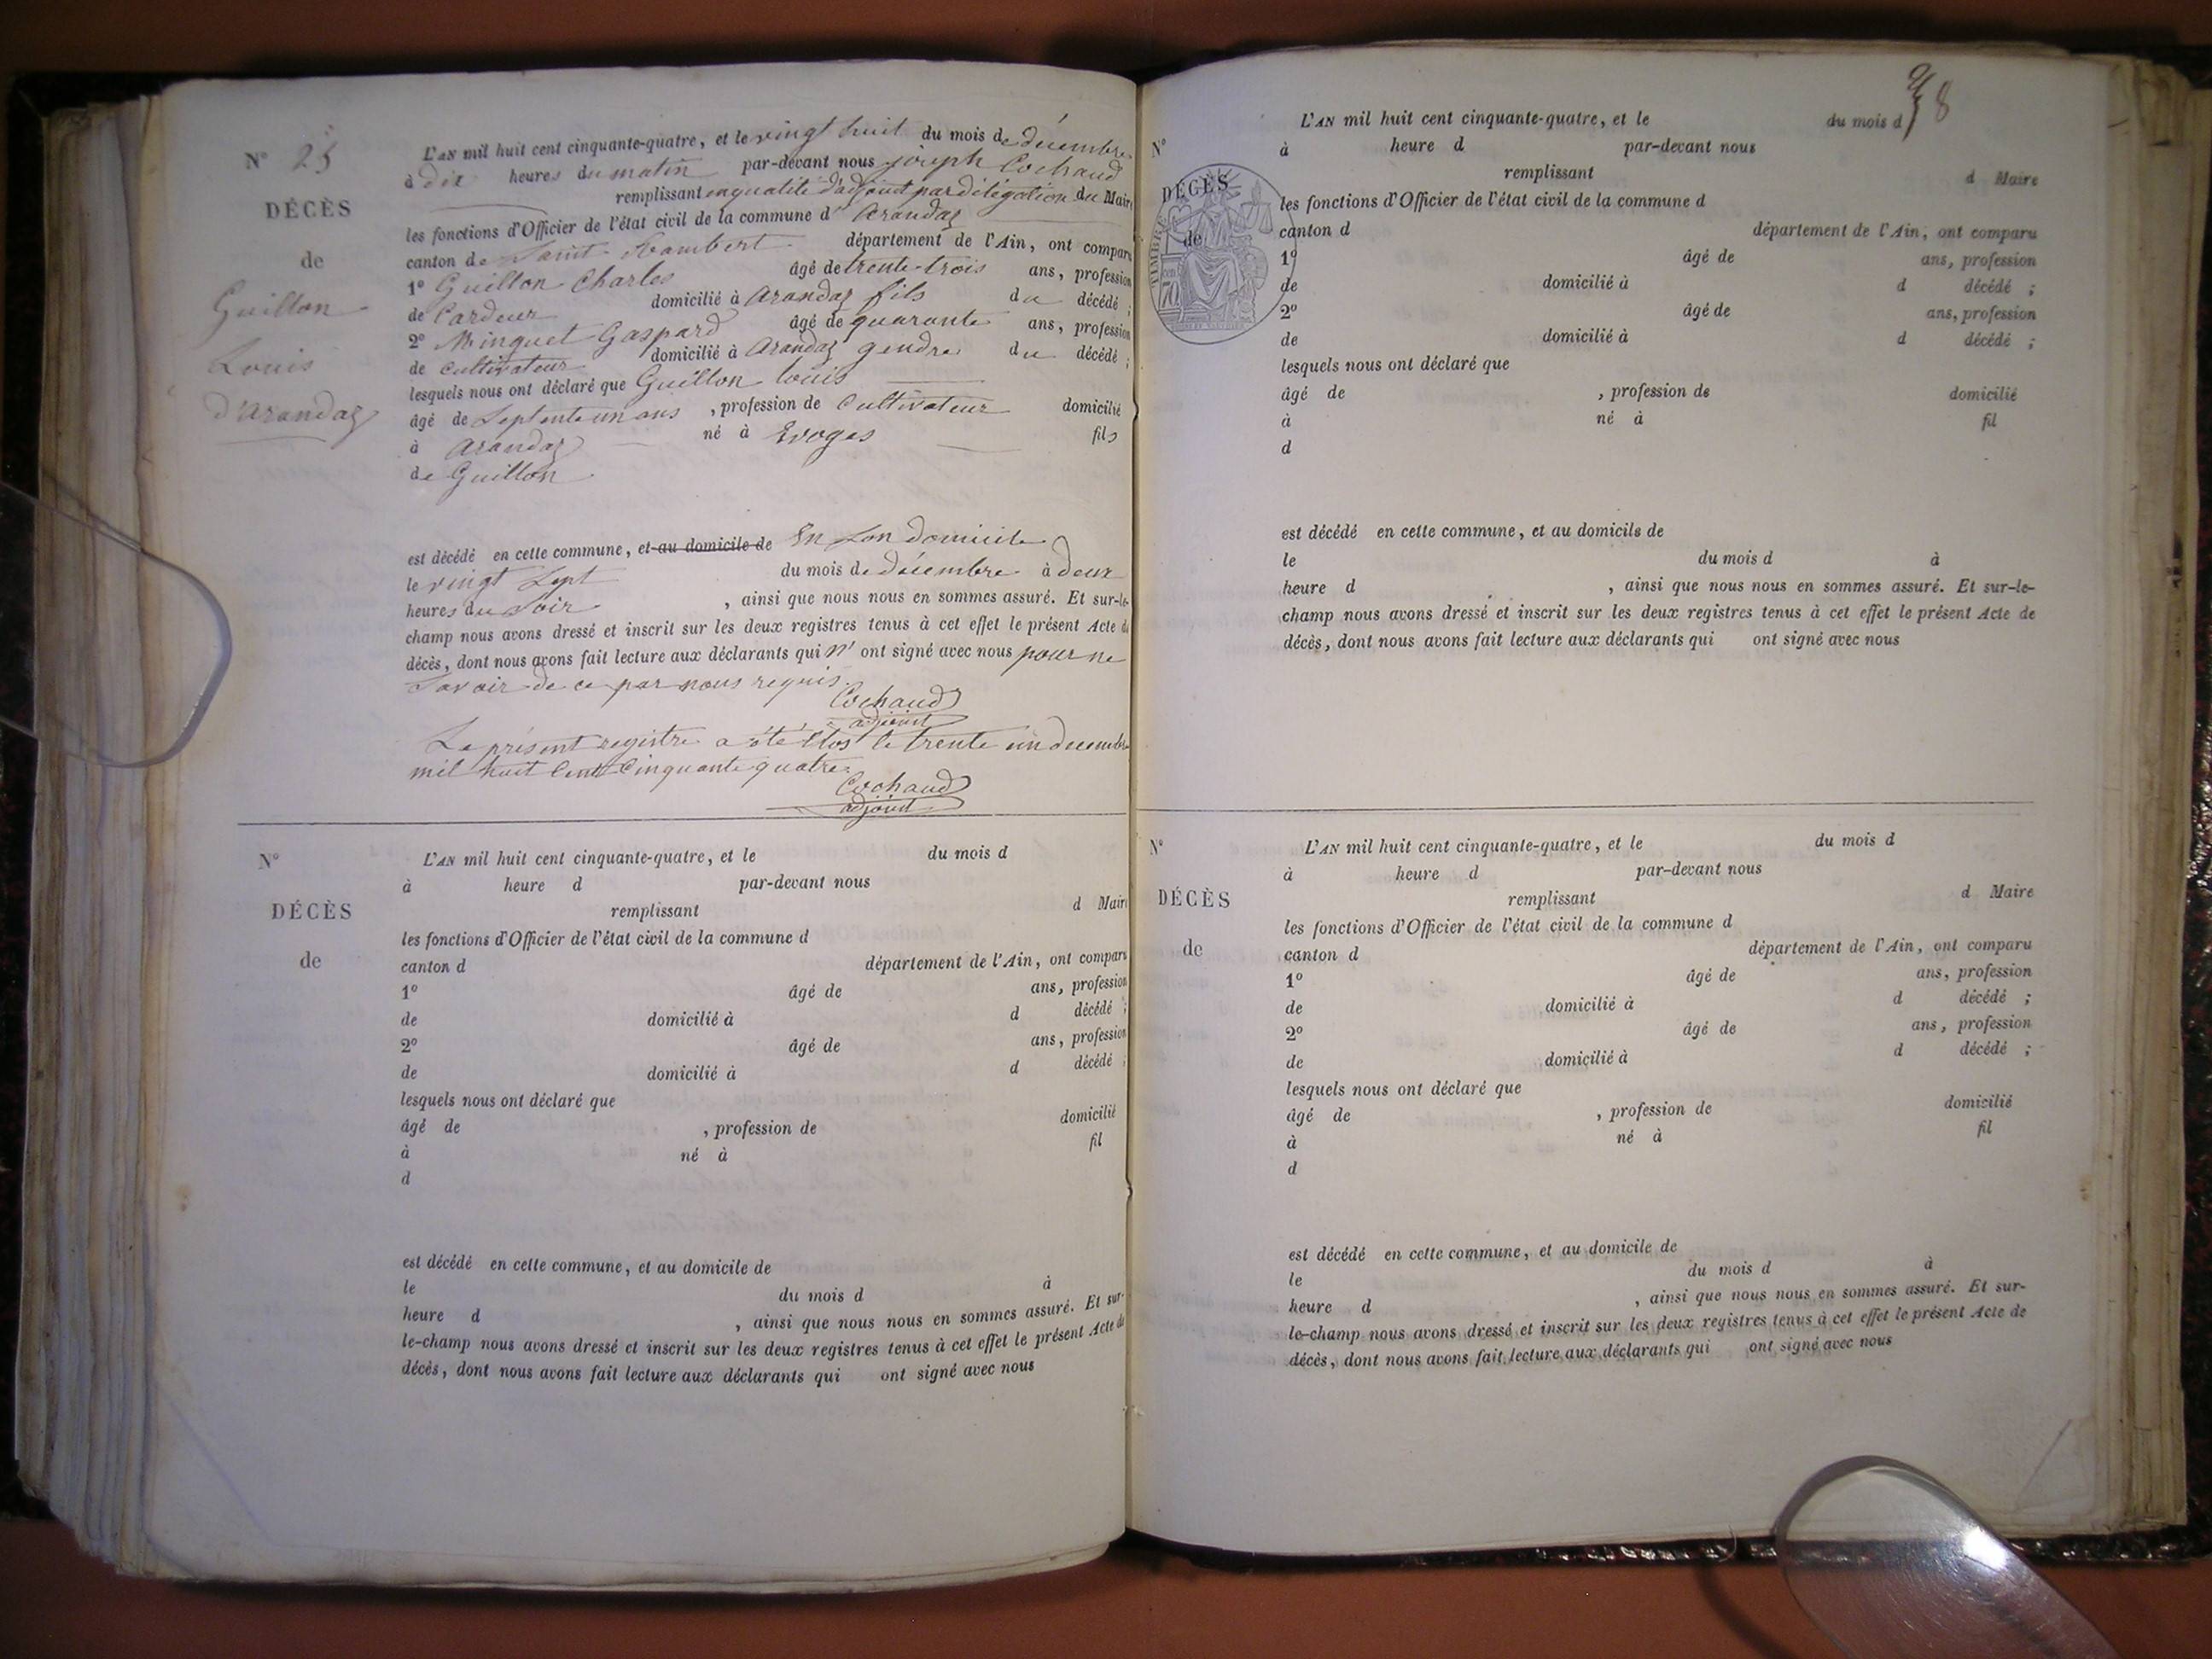 N° 25
DÉCÈS
de
Guillon
Louis
d'Arandaz
L'AN mil huit cent cinquante-quatre, et le vingt huit du mois de décembre
à dix heures du matin par-devant nous joseph Cochaud
remplissant en qualité d'adjoint par délégation du Maire
les fonctions d'Officier de l'état civil de la commune d'Arandaz
canton de Saint Rambert département de l'Ain, ont comparu
1° Guillon Charles âgé de trente-trois ans, profession
de Cardeur domicilié à Arandaz fils du décédé ;
2° Minguet Gaspard âgé de quarante ans, profession
de Cultivateur domicilié à Arandaz gendre du décédé ;
lesquels nous ont déclaré que Guillon Louis
âgé de Septente un ans , profession de Cultivateur domicilié
à Arandaz né à Evoges fils
de Guillon
est décédé en cette commune, et au domicile de En Son domicile
le vingt Sept du mois de décembre à deux
heures du Soir , ainsi que nous nous en sommes assuré. Et sur-le-
champ nous avons dressé et inscrit sur les deux registres tenus à cet effet le présent Acte de
décès, dont nous avons fait lecture aux déclarants qui n' ont signé avec nous pour ne
Savoir de ce par nous requis.
Cochaud
adjoint
Le présent registre a été Clos le trente un decembre
mil huit Cent Cinquante quatre.
Cochaud
adjoint
N°
DÉCÈS
de
L'AN mil huit cent cinquante-quatre, et le du mois d
à heure d par-devant nous
remplissant d Maire
les fonctions d'Officier de l'état civil de la commune d
canton d département de l'Ain, ont comparu
1° âgé de ans, profession
de domicilié à d décédé ;
2° âgé de ans, profession
de domicilié à d décédé ;
lesquels nous ont déclaré que
âgé de , profession de domicilié
à né à fil
d
est décédé en cette commune, et au domicile de
le du mois d à
heure d , ainsi que nous nous en sommes assuré. Et sur-
le-champ nous avons dressé et inscrit sur les deux registres tenus à cet effet le présent Acte de
décès, dont nous avons fait lecture aux déclarants qui ont signé avec nous
8
N°
DÉCÈS
de
TIMBRE
70
L'AN mil huit cent cinquante-quatre, et le du mois d
à heure d par-devant nous
remplissant d Maire
les fonctions d'Officier de l'état civil de la commune d
canton d département de l'Ain, ont comparu
1° âgé de ans, profession
de domicilié à d décédé ;
2° âgé de ans, profession
de domicilié à d décédé ;
lesquels nous ont déclaré que
âgé de , profession de domicilié
à né à fil
d
est décédé en cette commune, et au domicile de
le du mois d à
heure d , ainsi que nous nous en sommes assuré. Et sur-le-
champ nous avons dressé et inscrit sur les deux registres tenus à cet effet le présent Acte de
décès, dont nous avons fait lecture aux déclarants qui ont signé avec nous
N°
DÉCÈS
de
L'AN mil huit cent cinquante-quatre, et le du mois d
à heure d par-devant nous
remplissant d Maire
les fonctions d'Officier de l'état civil de la commune d
canton d département de l'Ain, ont comparu
1° âgé de ans, profession
de domicilié à d décédé ;
2° âgé de ans, profession
de domicilié à d décédé ;
lesquels nous ont déclaré que
âgé de , profession de domicilié
à né à fil
d
est décédé en cette commune, et au domicile de
le du mois d à
heure d , ainsi que nous nous en sommes assuré. Et sur-
le-champ nous avons dressé et inscrit sur les deux registres tenus à cet effet le présent Acte de
décès, dont nous avons fait lecture aux déclarants qui ont signé avec nous